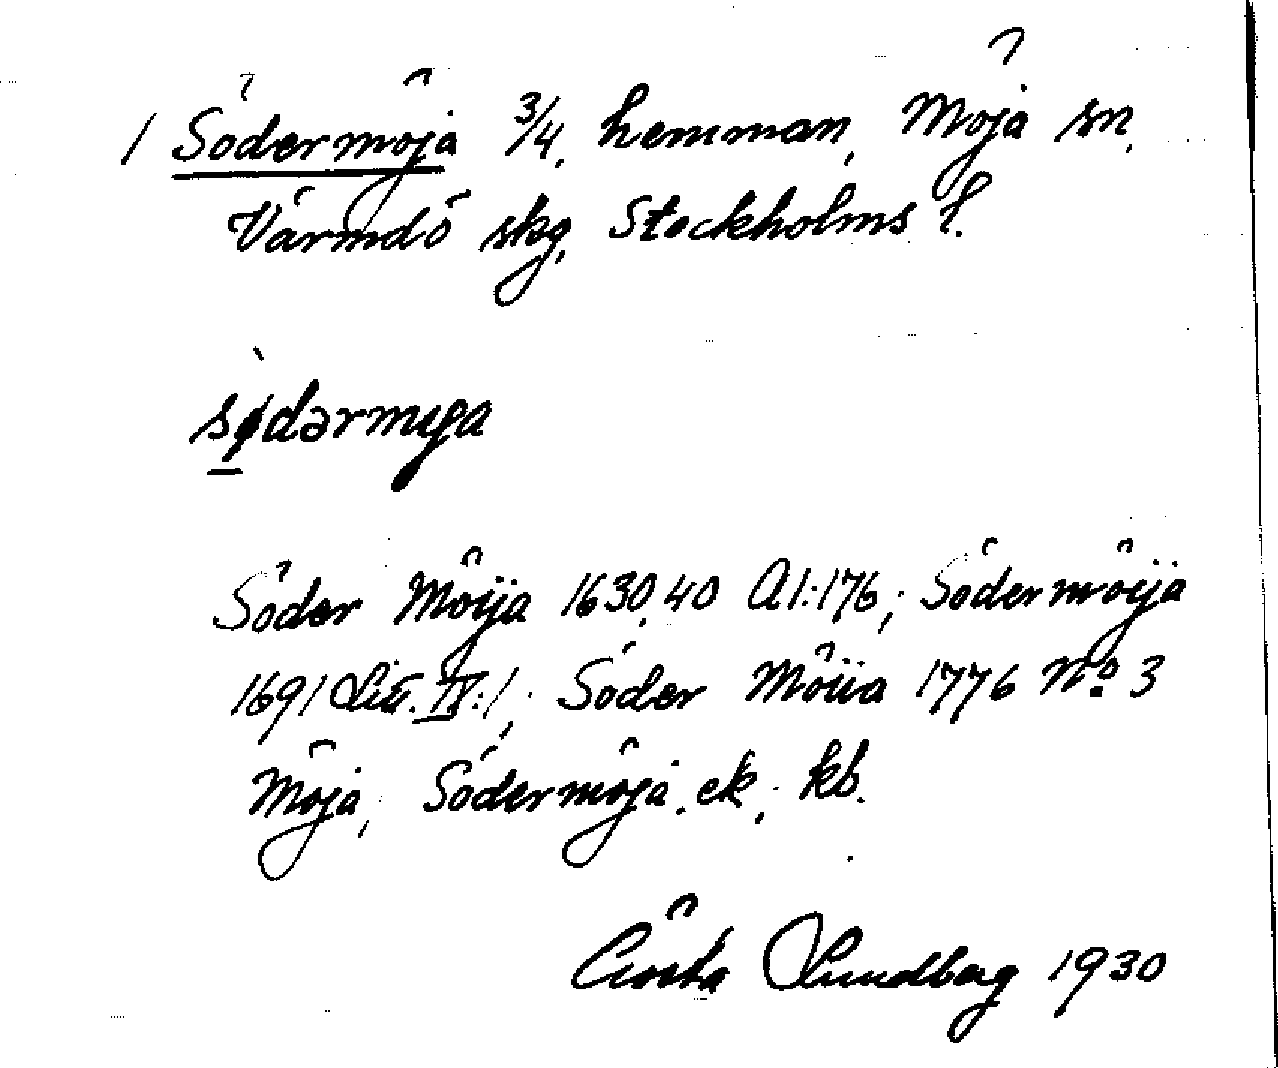 1 Södermöja 3/4, hemman, Möja sn,
Värmdö skg, Stockholms l.
sødərmya
Söder Möija 1630, 40 A1:176; Södermöija
1691 Lit. IV:1; Söder Möiia 1776 No 3
Möja; Södermöja. ek.; kb.
Gösta Lundberg 1930